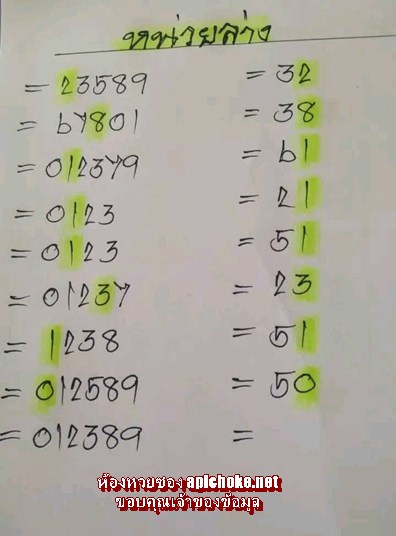 หน่วยล่าง
= 23589 = 32
= 67801 = 38
= 012379 = 61
= 0123 = 21
= 0123 = 51
= 01237 = 23
= 1238 = 51
= 012589 = 50
= 012389 =
ห้องหวยซอง apichoke.net
ขอบคุณเจ้าของข้อมูล